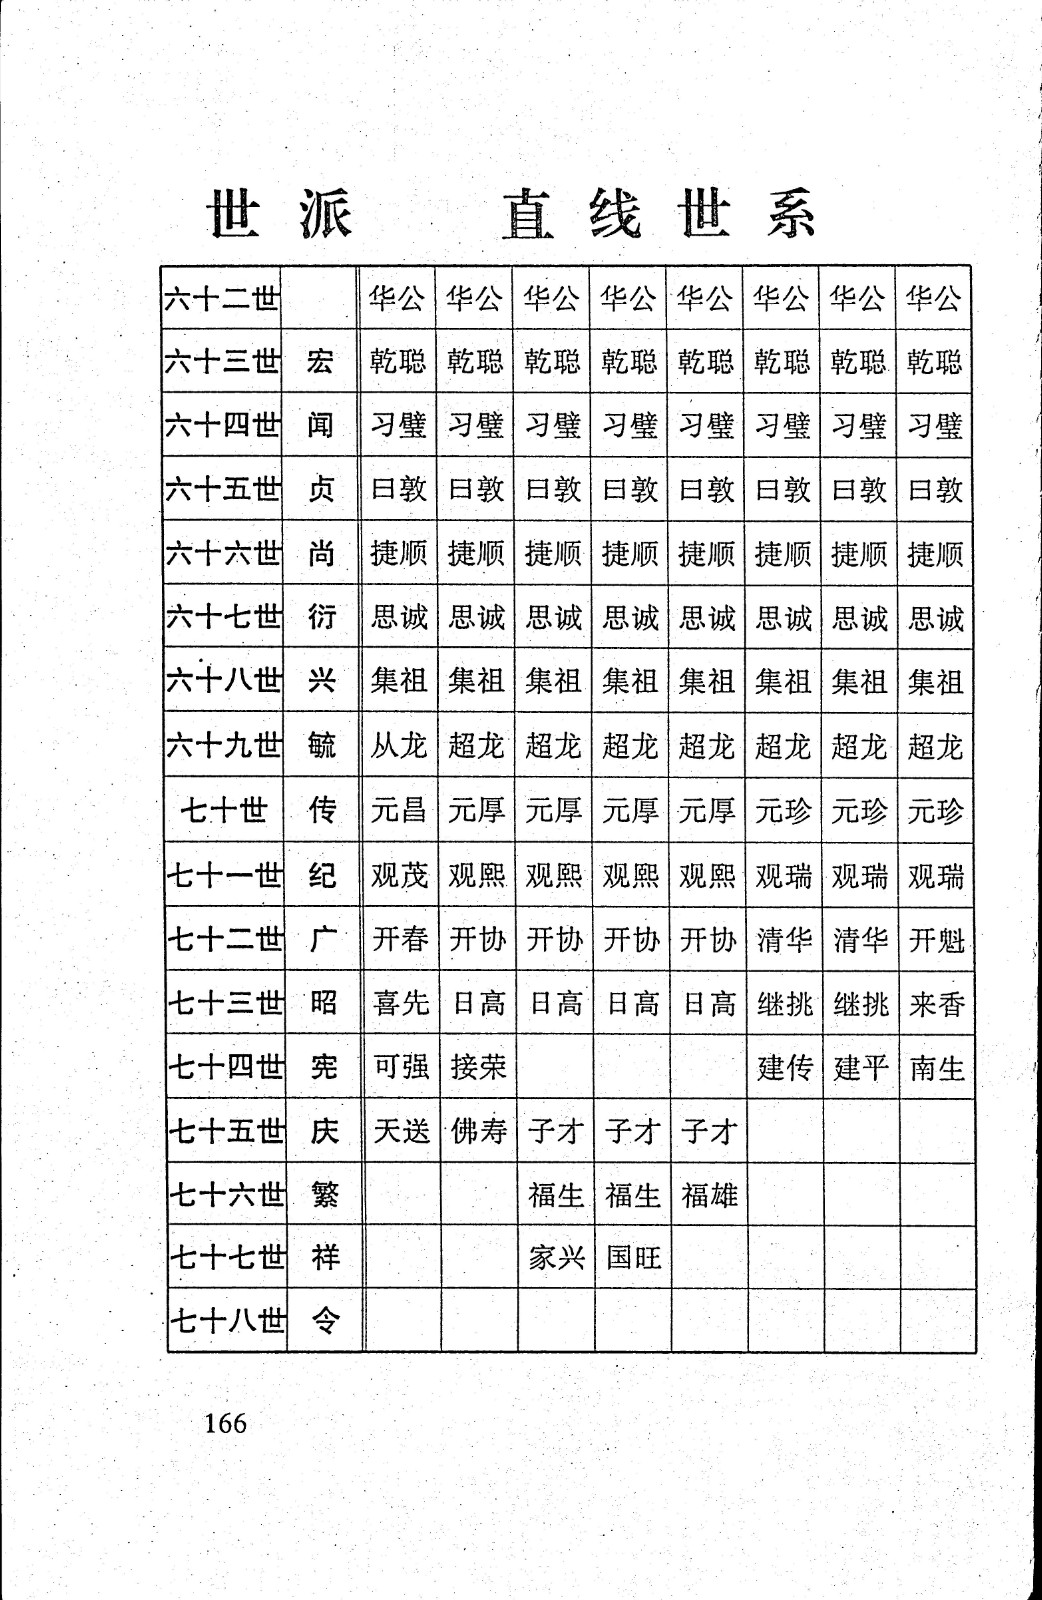 世派 直线世系
六十二世 华公 华公 华公 华公 华公 华公 华公 华公
六十三世 宏 乾聪 乾聪 乾聪 乾聪 乾聪 乾聪 乾聪 乾聪
六十四世 闻 习璧 习璧 习璧 习璧 习璧 习璧 习璧 习璧
六十五世 贞 曰敦 曰敦 曰敦 曰敦 曰敦 曰敦 曰敦 曰敦
六十六世 尚 捷顺 捷顺 捷顺 捷顺 捷顺 捷顺 捷顺 捷顺
六十七世 衍 思诚 思诚 思诚 思诚 思诚 思诚 思诚 思诚
六十八世 兴 集祖 集祖 集祖 集祖 集祖 集祖 集祖 集祖
六十九世 毓 从龙 超龙 超龙 超龙 超龙 超龙 超龙 超龙
七十世 传 元昌 元厚 元厚 元厚 元厚 元珍 元珍 元珍
七十一世 纪 观茂 观熙 观熙 观熙 观熙 观瑞 观瑞 观瑞
七十二世 广 开春 开协 开协 开协 开协 清华 清华 开魁
七十三世 昭 喜先 日高 日高 日高 日高 继挑 继挑 来香
七十四世 宪 可强 接荣 建传 建平 南生
七十五世 庆 天送 佛寿 子才 子才 子才
七十六世 繁 福生 福生 福雄
七十七世 祥 家兴 国旺
七十八世 令
166